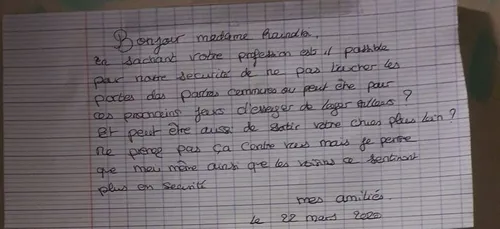 Bonjour madame
En sachant votre profession est il possible
par notre securité de ne pas toucher les
portes des parties communes ou peut être pour
ces prochains jours d'essayer de loger ailleurs ?
Et peut être aussi de sortir votre chien plus loin ?
Ne prenez pas ça contre vous mais je pense
que moi même ainsi que les voisins se sentiront
plus en securité
mes amitiés.
le 22 mars 2020